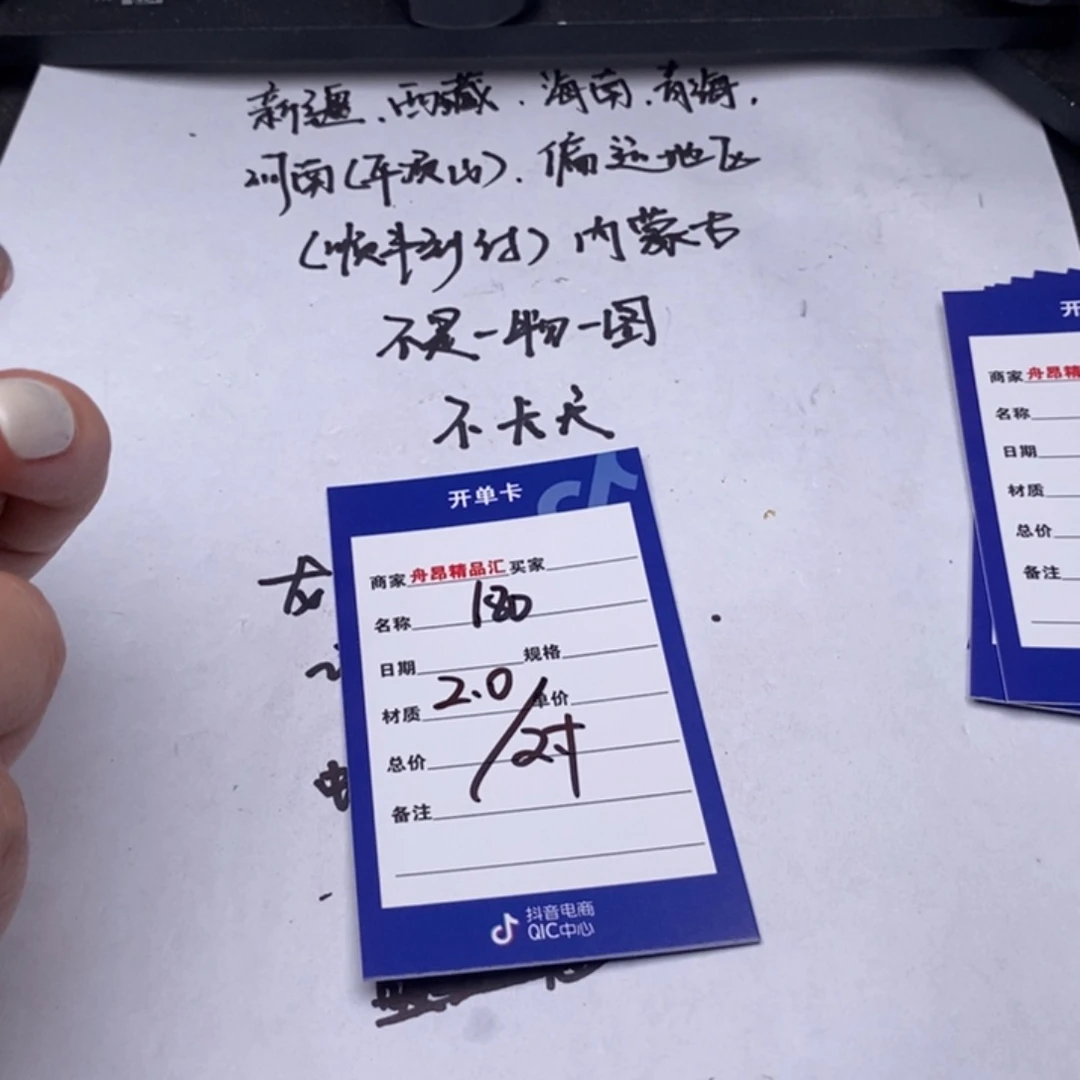 新疆、西藏、海南、青海、
河南(平顶山)、偏远地区
(顺丰到付)内蒙古
不是一物一图
不卡天
开单卡
商家 舟昂精品汇 买家
名称 180
日期 规格
材质 2.0/对 单价
总价
备注
抖音电商
QIC中心
开
商家 舟昂精
名称
日期
材质
总价
备注